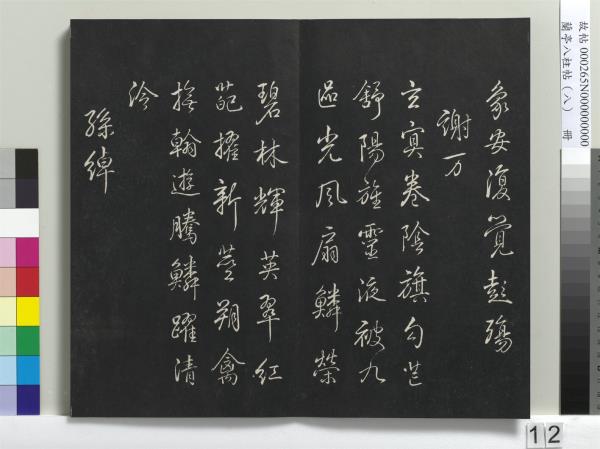 象安復覺彭殤
謝万
玄寞卷陰旗句芒
舒陽旌靈液被九
區光風扇鱗榮
碧林輝英翠紅
葩擢新莖翔禽
撫翰遊騰鱗躍清
泠
孫綽
故帖 000265N000000000
蘭亭八柱帖(八) 冊
12